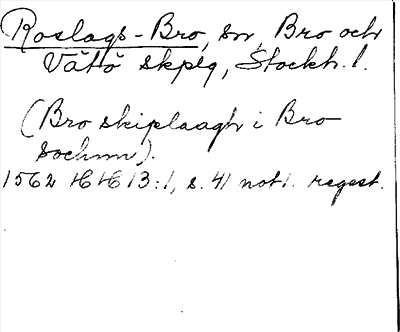 Roslags-Bro, sn, Bro och
Vätö skplg, Stockh. l.
(Bro skiplaagh i Bro
sochnn).
1562 HH 13:1, s. 41 not 1. regest.